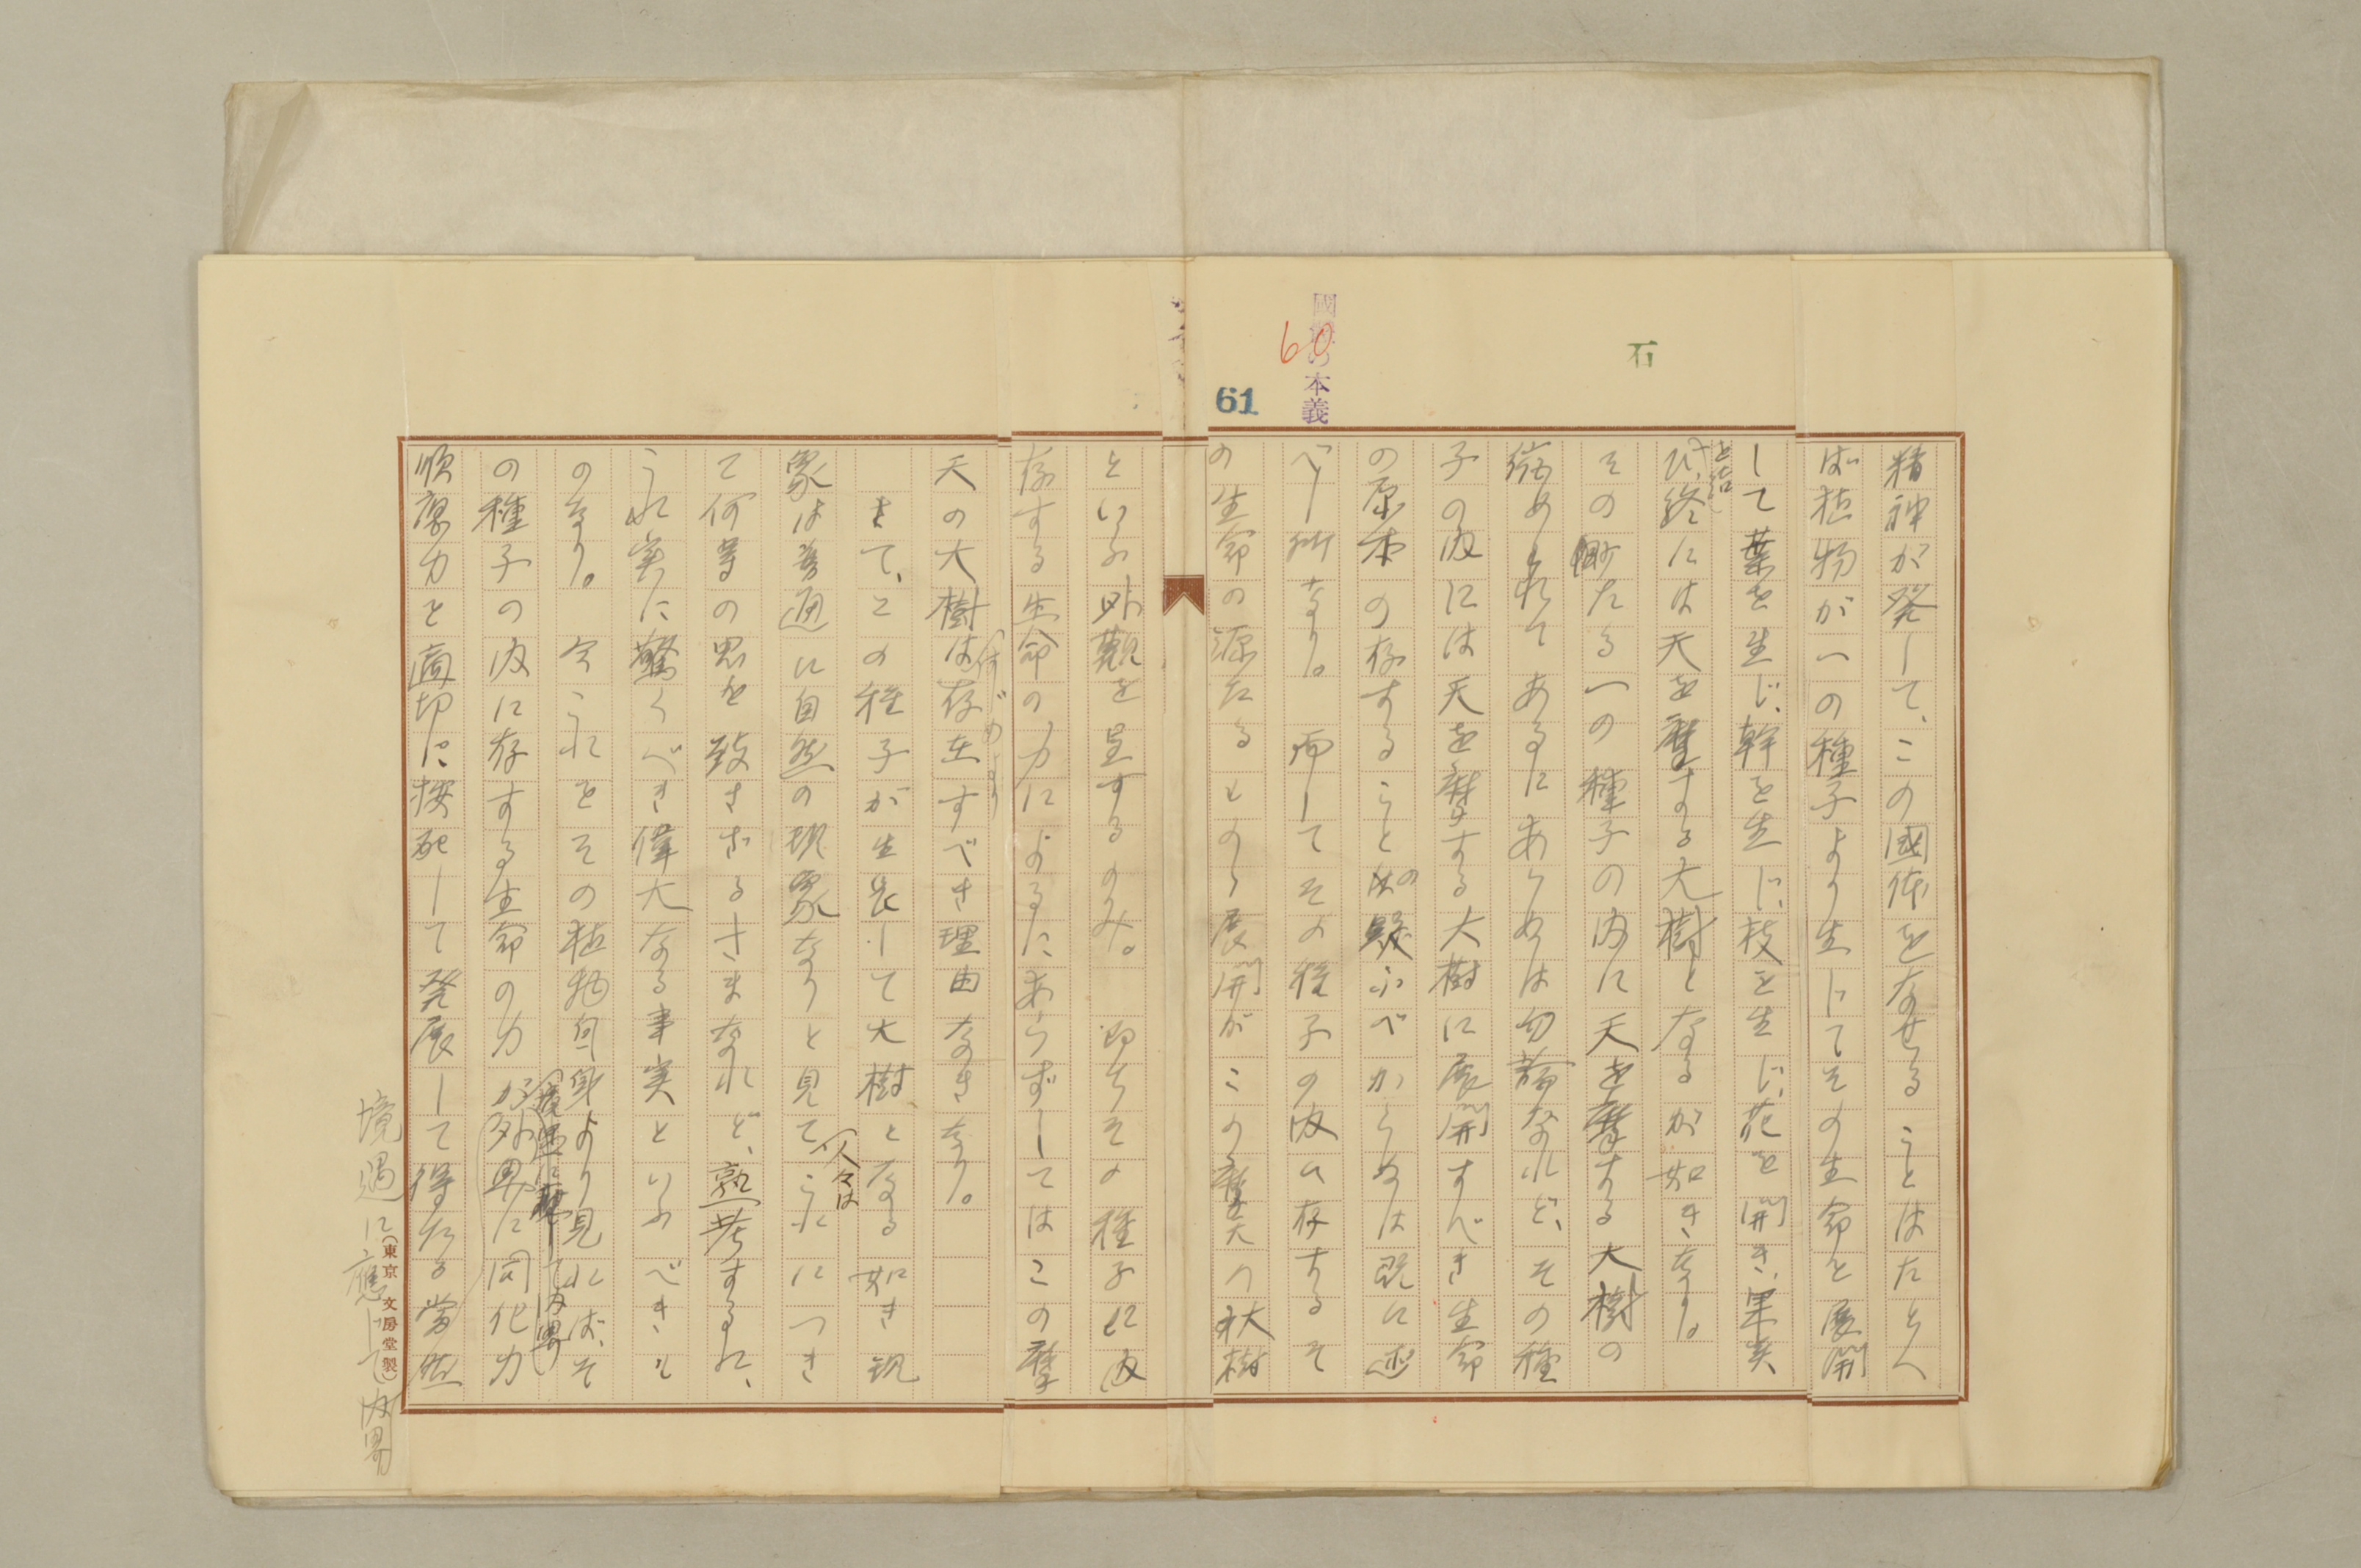 國體の本義
60
61
石
精神が発して、この國体をなせることはたとへ
ば植物が一の種子より生じてその生命と展開
して葉を生じ、幹を生じ、枝を生じ、花を開き、果実
を結び、終には天を摩する大樹となるが如きなり。
その眇たる一の種子の内に天を摩する大樹の
縮められてあるにあらぬは勿論なれど、その種
子の内には天を摩する大樹に展開すべき生命
の原本の存することの疑ふべからぬは既に述
べし所なり。而してその種子の内に存するそ
の生命の源たるもの、展開がこの摩天の大樹
といふ外觀を呈するのみ。即ちその種子に内
存する生命の力によるにあらずしてはこの摩
天の大樹は何じめより存在すべき理由なきなり。
さて、この種子が生長して大樹となる如き現
象は普通に自然の現象なりと見て人々はこれにつき
て何等の思を致さざるさまなれど、熟考するに、
これ実に驚くべき偉大なる事実といふべきも
のなり。今これをその植物自身より見れば、そ
の種子の内に存する生命の力が外界に同化力
境遇に應じて内界
順應力と適切に按配して発展して得たる当然
境遇に應じて内界
(東京 文房堂製)